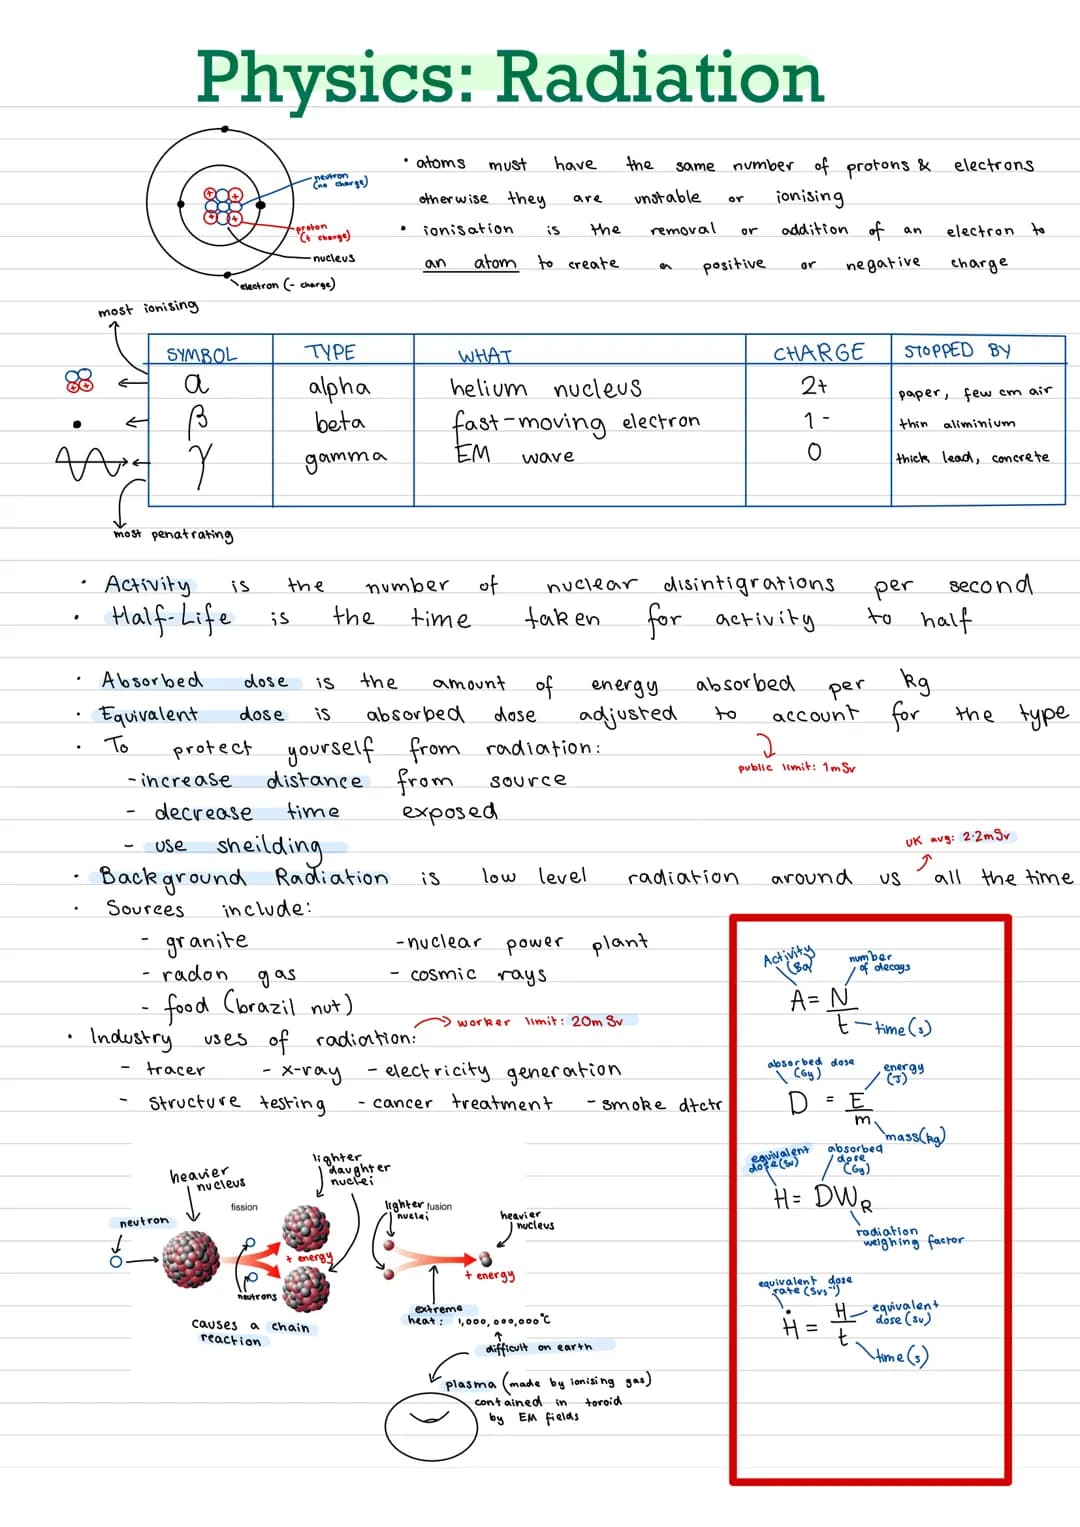 Physics: Radiation
neutron
(no charge)
proton
(+ charge)
nucleus
electron (- charge)
• atoms must have the same number of protons & electrons
otherwise they are unstable or ionising
• ionisation is the removal or addition of an electron to
an atom to create a positive or negative charge
most ionising
SYMBOL TYPE WHAT CHARGE STOPPED BY
α alpha helium nucleus 2+ paper, few cm air
β beta fast-moving electron 1- thin aliminium
γ gamma EM wave 0 thick lead, concrete
most penatrating
• Activity is the number of nuclear disintigrations per second
• Half-Life is the time taken for activity to half
• Absorbed dose is the amount of energy absorbed per kg
• Equivalent dose is absorbed dose adjusted to account for the type
public limit: 1mSv
• To protect yourself from radiation:
- increase distance from source
- decrease time exposed
- use sheilding
UK avg: 2.2mSv
• Background Radiation is low level radiation around us all the time
• Sources include:
- granite - nuclear power plant
- radon gas - cosmic rays
- food (brazil nut)
• Industry uses of radiation:
worker limit: 20mSv
- tracer - x-ray - electricity generation
- structure testing - cancer treatment - smoke dtctr
Activity
(Bq)
number
of decays
A = N
t
time(s)
absorbed dose
(Gy)
energy
(J)
D = E
m
mass(kg)
equivalent
dose(Sv)
absorbed
dose
(Gy)
H = DWR
radiation
weighing factor
equivalent dose
rate (Svs⁻¹)
Ḣ = H
t
equivalent
dose (Sv)
time(s)
neutron
heavier
nucleus
fission
lighter
daughter
nuclei
+ energy
neutrons
causes a chain
reaction
lighter
nuclei
fusion
heavier
nucleus
+ energy
extreme
heat: 1,000,000,000°C
difficult on earth
plasma (made by ionising gas)
contained in toroid
by EM fields